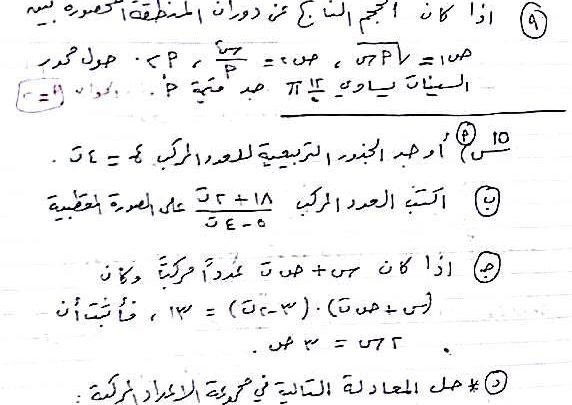 ٩ اذا كان الحجم الناتج عن دوران المنطقة المحصورة بين
ص١ = √٢س ، ص٢ = س٢/٢ ، ٢ > ٠ حول محور
السينات يساوي π جد قيمة ٢ .
١٥ س٢) أوجد الجذور التربيعية للعدد المركب ع = ٤ت .
ب اكتب العدد المركب (١٨+٢ت)/(٥-٤ت) على الصورة القطبية
ج اذا كان س + ص ت عدداً مركباً وكان
(س + ص ت) . (٣ - ٢ت) = ١٣ ، فأثبت أن
٢س = ٣ص .
د * حل المعادلة التالية في مجموعة الاعداد المركبة :